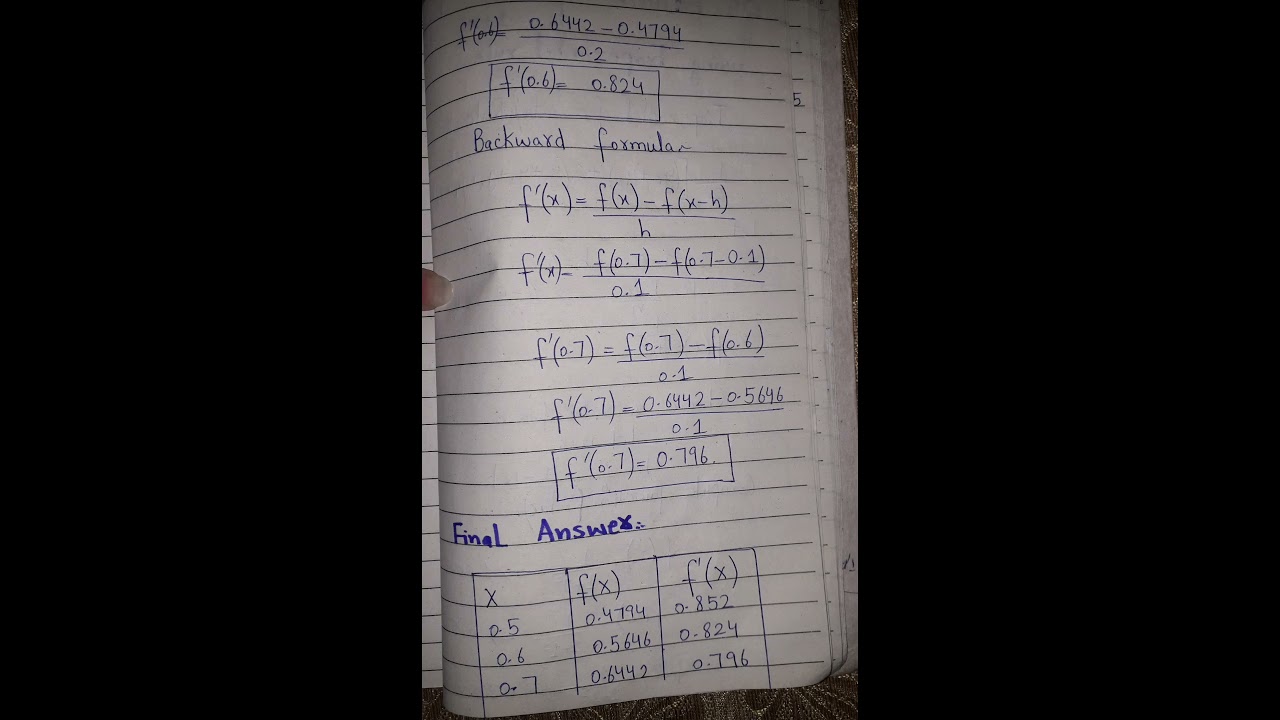 f'(0.6)= 0.6442 - 0.4794
0.2
f'(0.6)= 0.824
5
Backward formula~
f'(x) = f(x) - f(x-h)
h
f'(x)- f(0.7) - f(0.7-0.1)
0.1
f'(0.7) = f(0.7) - f(0.6)
0.1
f'(0.7) = 0.6442 - 0.5646
0.1
f'(0.7) = 0.796.
Final Answer:-
x f(x) f'(x)
0.5 0.4794 0.852
0.6 0.5646 0.824
0.7 0.6442 0.796